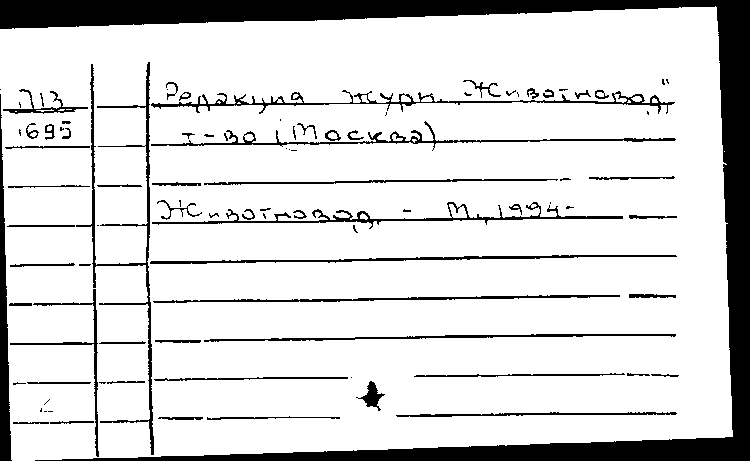 П13
1695
Редакция журн. Животновод"
т-во (Москва)
Животновод. - М., 1994-